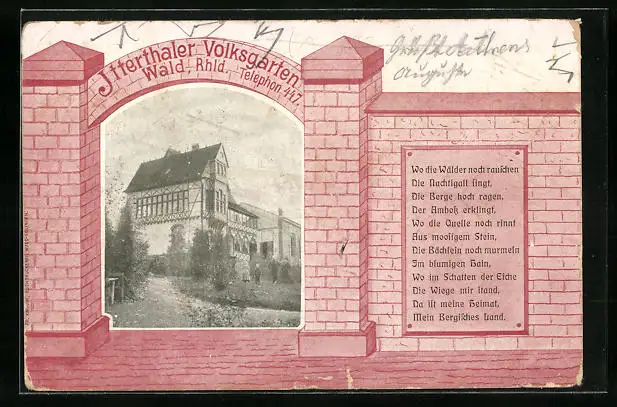 Itterthaler Volksgarten
Wald, Rhld. Telephon 447.
Auguste
Wo die Wälder noch rauschen
Die Nachtigall singt,
Die Berge hoch ragen,
Der Amboß erklingt,
Wo die Quelle noch rinnt
Aus moosigem Stein,
Die Bächlein noch murmeln
Im blumigen Hain,
Wo im Schatten der Eiche
Die Wiege mir stand,
Da ist meine Heimat,
Mein Bergisches Land.